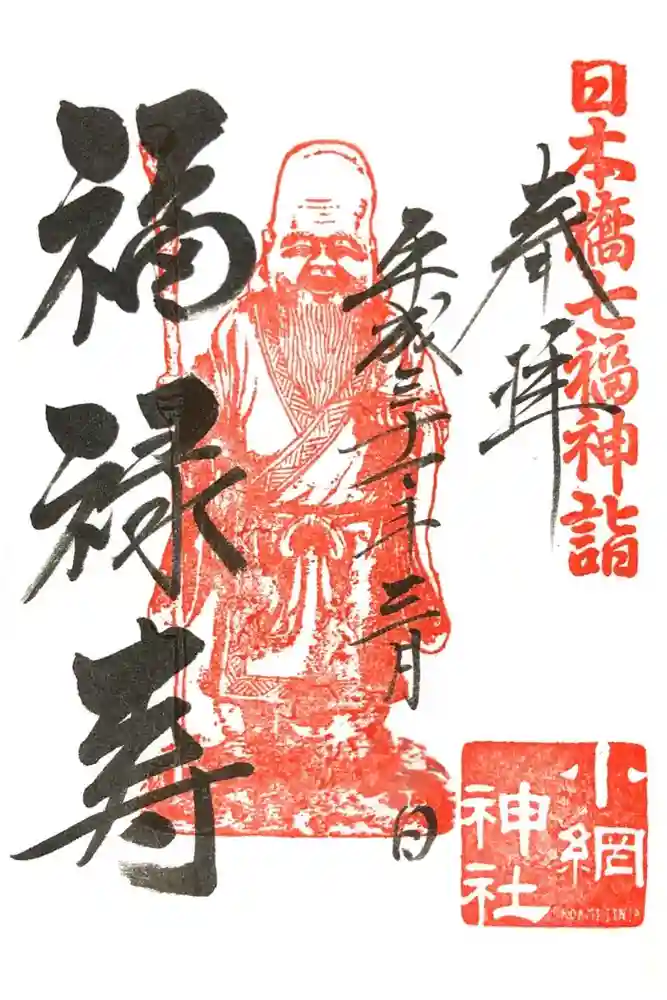 日本橋七福神詣
奉拝
平成三十一年三月 日
福禄寿
小網
神社
KOAMIJINJA